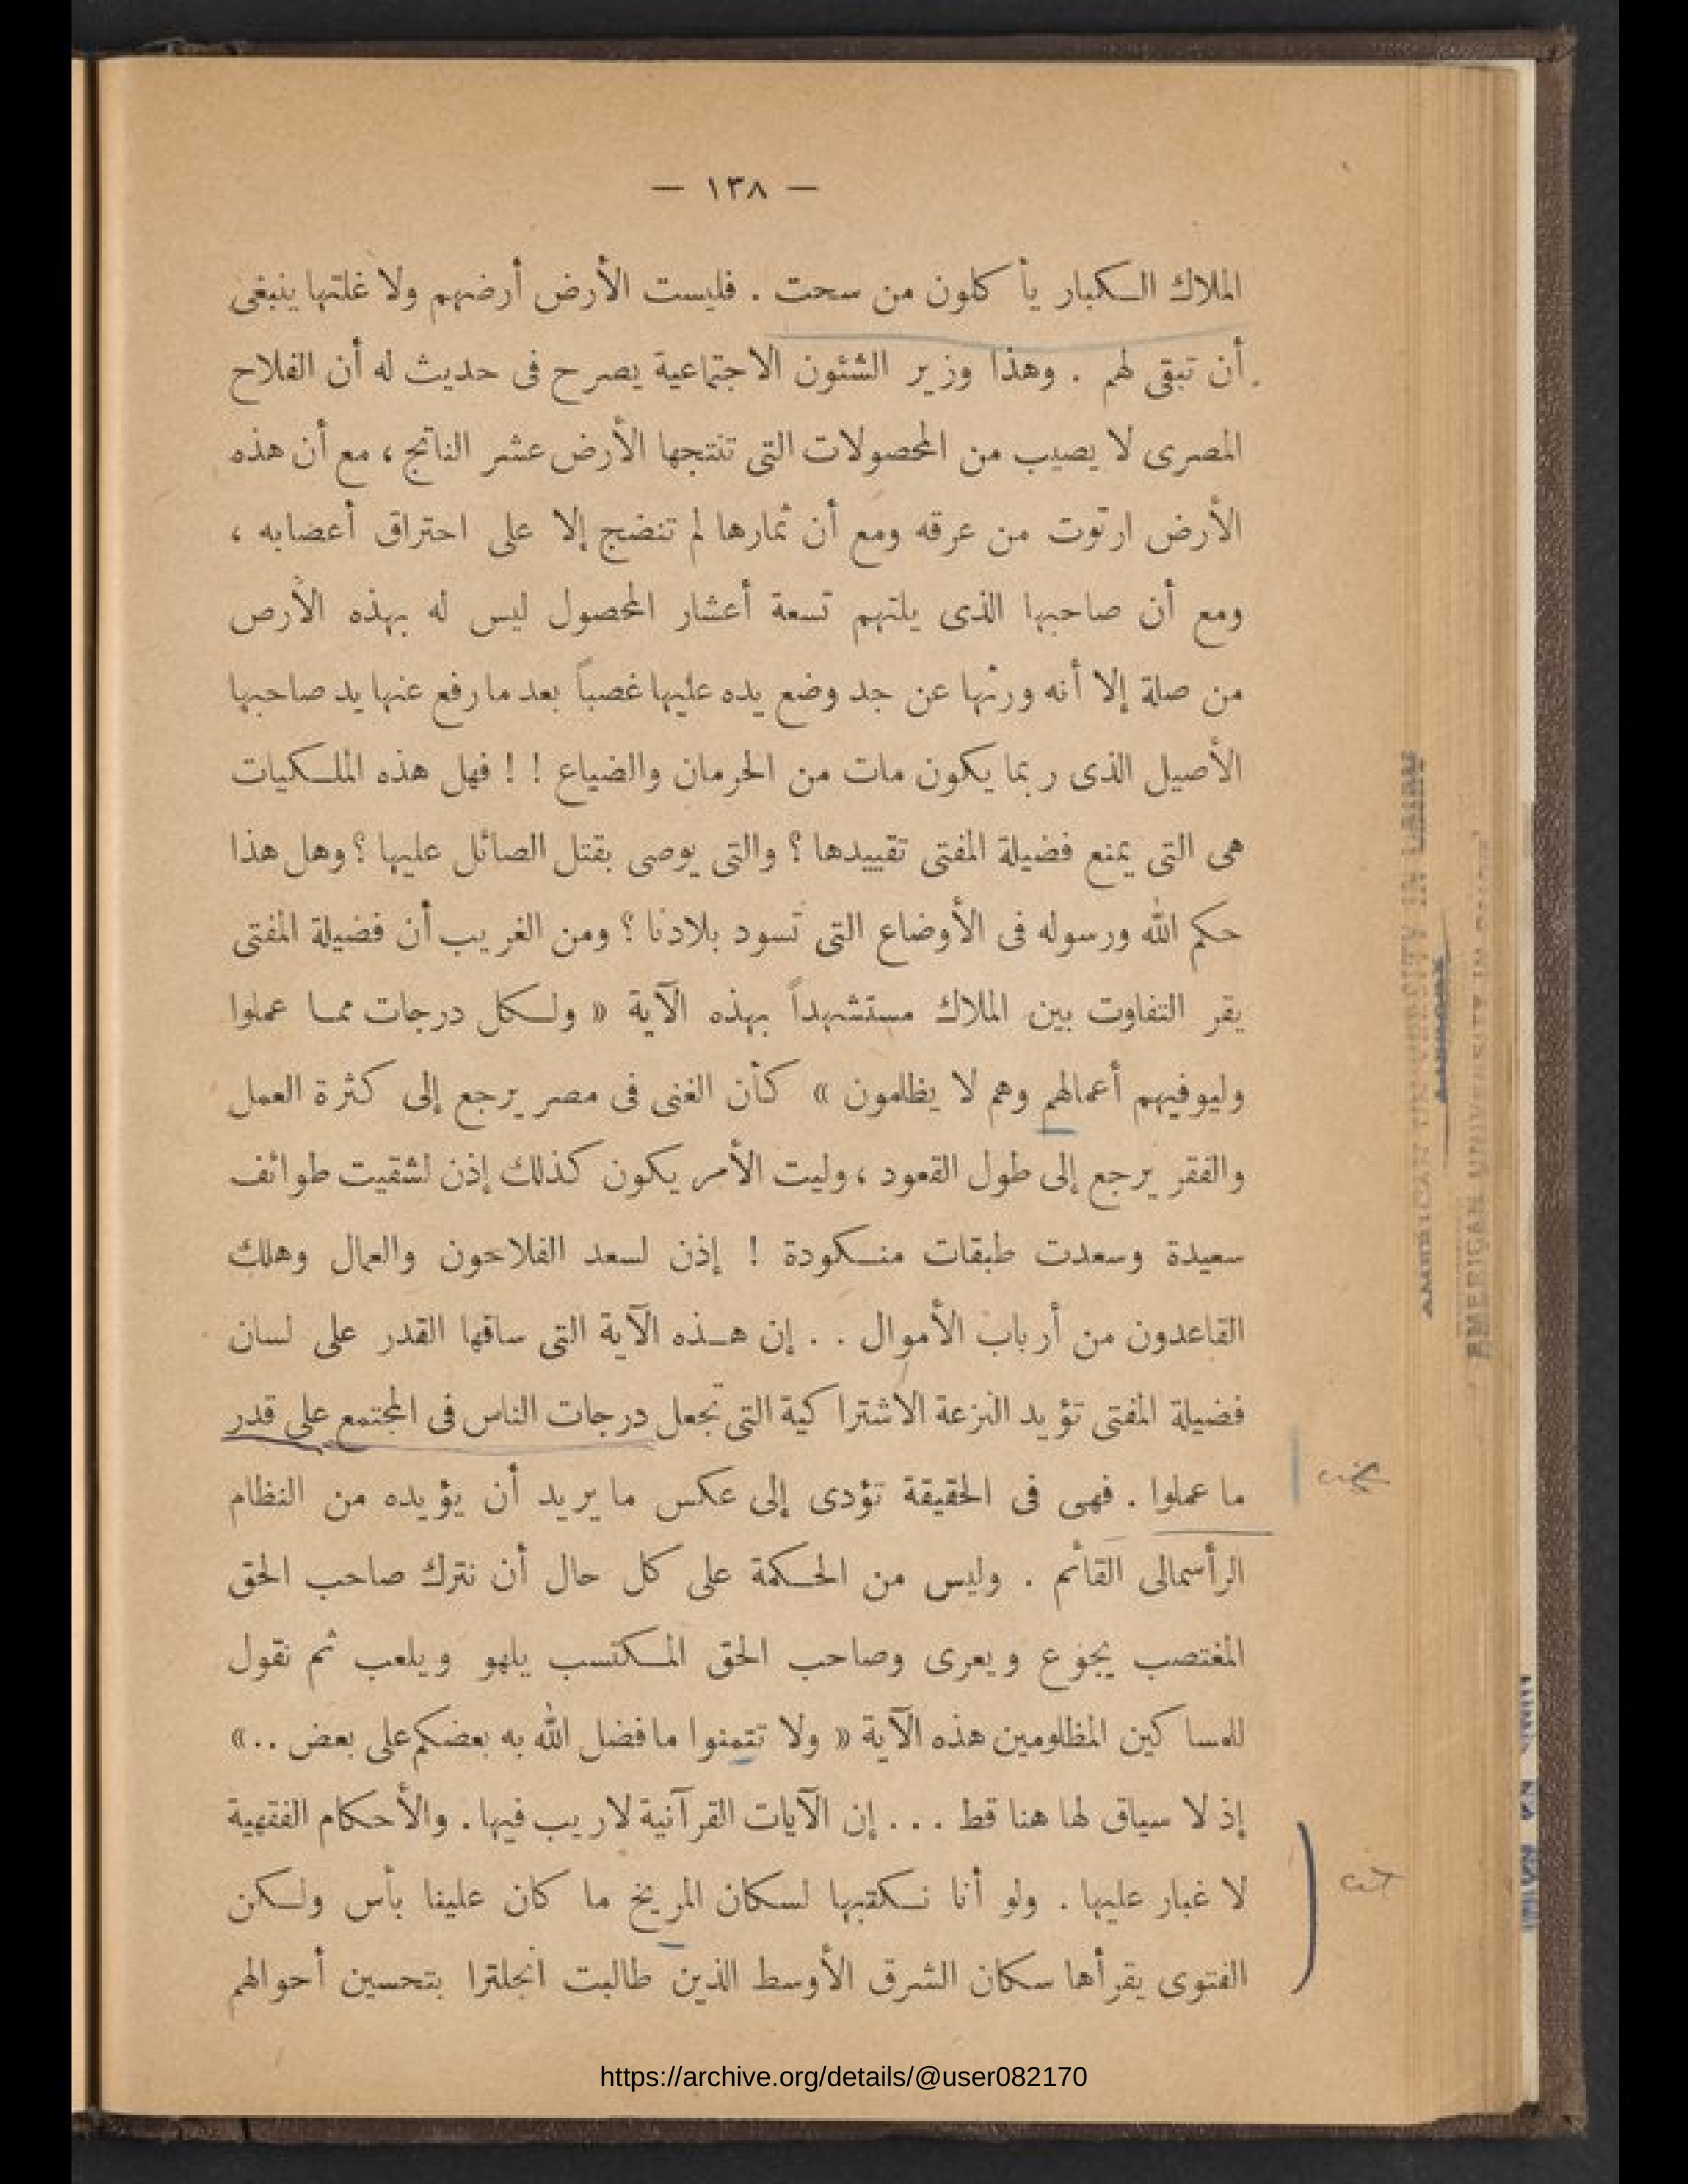 — ١٣٨ —
الملاك الكبار يأكلون من سحت . فليست الأرض أرضهم ولا غلتها ينبغى
أن تبقى لهم . وهذا وزير الشئون الاجتماعية يصرح فى حديث له أن الفلاح
المصرى لا يصيب من المحصولات التى تنتجها الأرض عشر الناتج ، مع أن هذه
الأرض ارتوت من عرقه ومع أن ثمارها لم تنضج إلا على احتراق أعصابه ،
ومع أن صاحبها الذى يلتهم تسعة أعشار المحصول ليس له بهذه الأرص
من صلة إلا أنه ورثها عن جد وضع يده عليها غصباً بعد ما رفع عنها يد صاحبها
الأصيل الذى ربما يكون مات من الحرمان والضياع ! ! فهل هذه الملكيات
هى التى يمنع فضيلة المفتى تقييدها ؟ والتى يوصى بقتل الصائل عليها ؟ وهل هذا
حكم الله ورسوله فى الأوضاع التى تسود بلادنا ؟ ومن الغريب أن فضيلة المفتى
يقر التفاوت بين الملاك مستشهداً بهذه الآية « ولكل درجات مما عملوا
وليوفيهم أعمالهم وهم لا يظلمون » كأن الغنى فى مصر يرجع إلى كثرة العمل
والفقر يرجع إلى طول القعود ، وليت الأمر يكون كذلك إذن لشقيت طوائف
سعيدة وسعدت طبقات منكودة ! إذن لسعد الفلاحون والعمال وهلك
القاعدون من أرباب الأموال . . إن هذه الآية التى ساقها القدر على لسان
فضيلة المفتى تؤيد النزعة الاشتراكية التى تجعل درجات الناس فى المجتمع على قدر
ما عملوا . فهى فى الحقيقة تؤدى إلى عكس ما يريد أن يؤيده من النظام
الرأسمالى القائم . وليس من الحكمة على كل حال أن نترك صاحب الحق
المغتصب يجوع ويعرى وصاحب الحق المكتسب يلهو ويلعب ثم نقول
للمساكين المظلومين هذه الآية « ولا تتمنوا ما فضل الله به بعضكم على بعض .. »
إذ لا سياق لها هنا قط . . . إن الآيات القرآنية لا ريب فيها . والأحكام الفقهية
لا غبار عليها . ولو أنا نكتبها لسكان المريخ ما كان علينا بأس ولكن
الفتوى يقرأها سكان الشرق الأوسط الذين طالبت انجلترا بتحسين أحوالهم
AMERICAN UNIVERSITY IN CAIRO
LIBRARY
AMERICAN UNIVERSITY IN
https://archive.org/details/@user082170